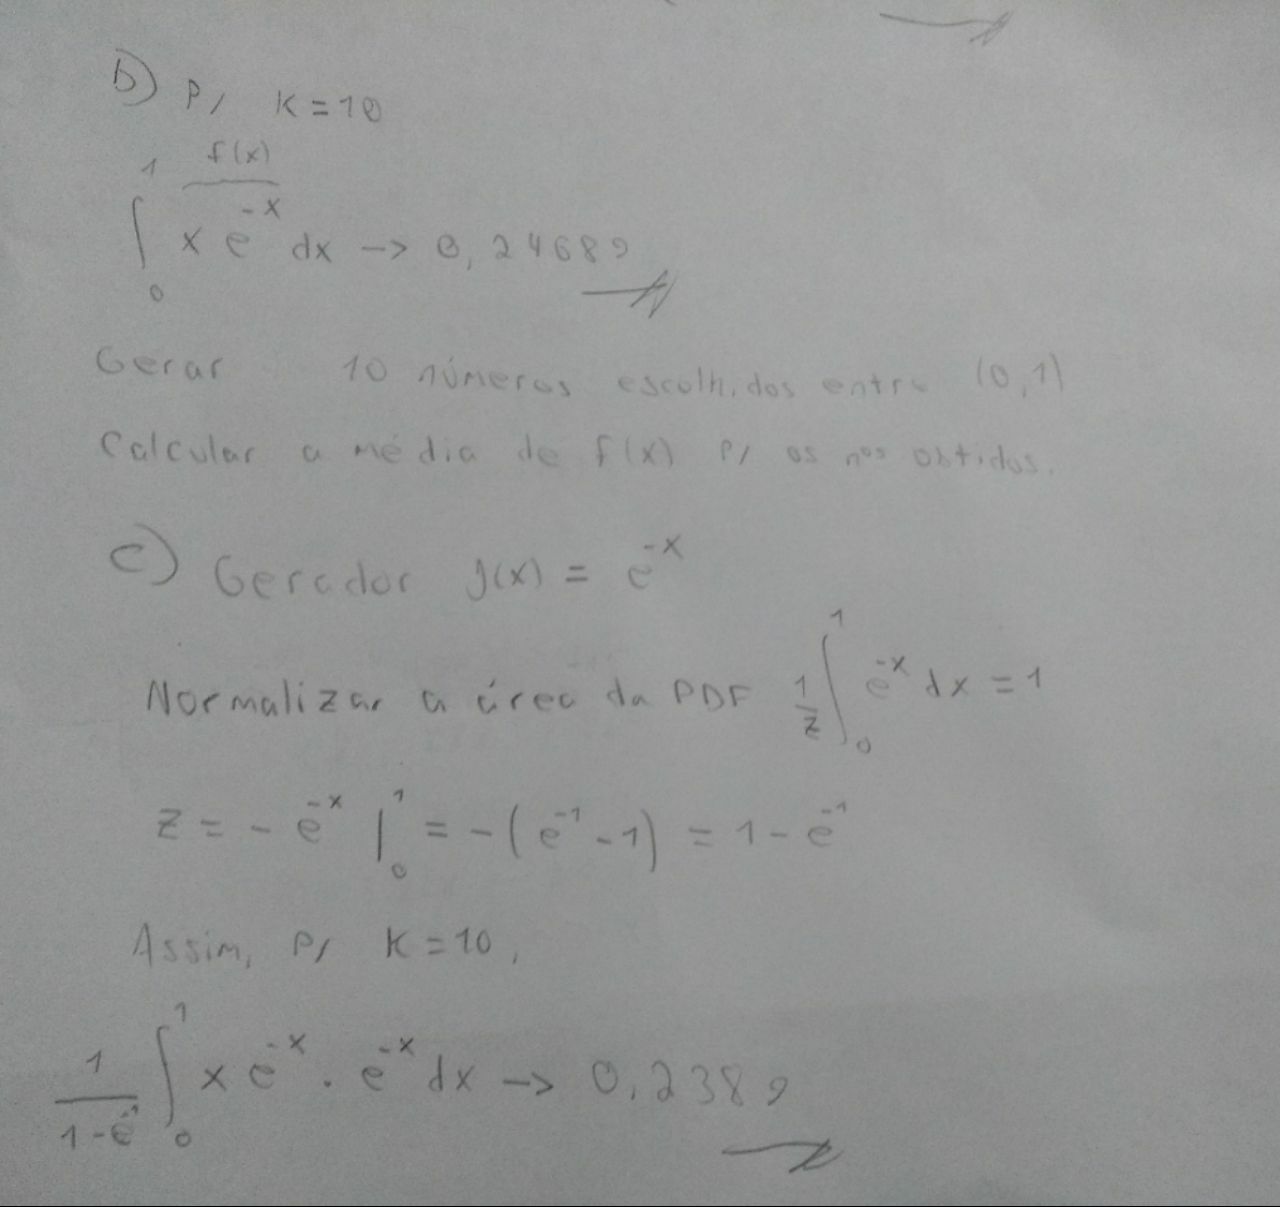 b) P/ K = 10
∫₀¹ x e^-x dx -> 0,24689
f(x)
Gerar 10 números escolhidos entre (0,1)
Calcular a média de f(x) P/ os nos obtidos.
c) Gerador g(x) = e^-x
Normalizar a área da PDF 1/z ∫₀¹ e^-x dx = 1
z = - e^-x |₀¹ = - (e^-1 - 1) = 1 - e^-1
Assim, P/ K = 10,
1/(1-e^-1) ∫₀¹ x e^-x . e^-x dx -> 0,2389